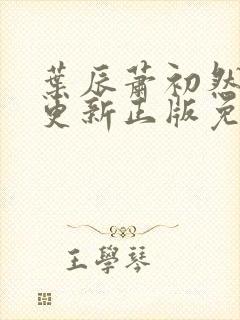 葉辰蕭初然
更新正版免
王學琴